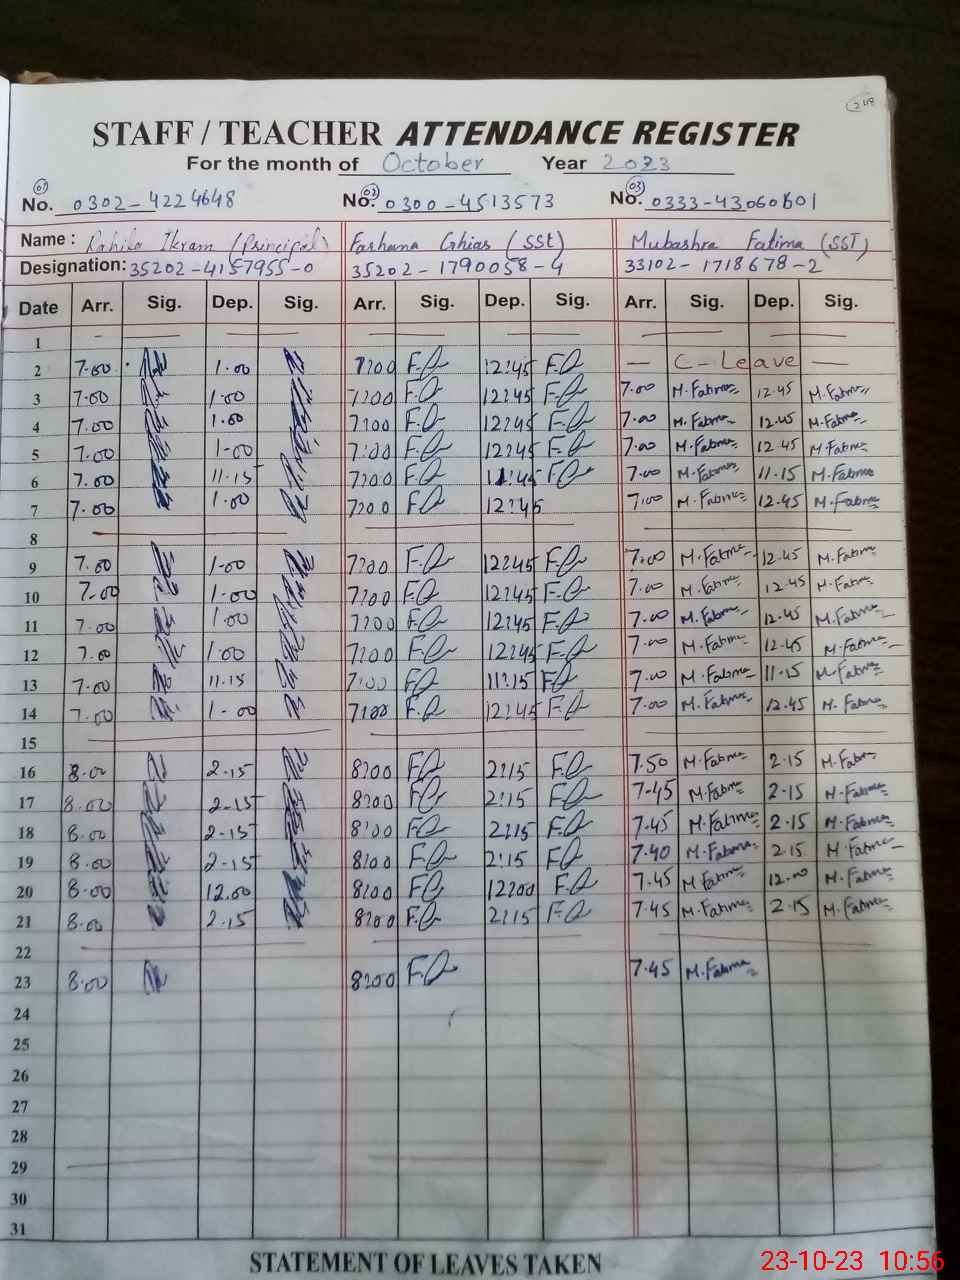 248
STAFF / TEACHER ATTENDANCE REGISTER
For the month of October Year 2023
01 02 03
No. 0302-4224648 No. 0300-4513573 No. 0333-43060801
Name : Rahila Ikram (Principal) Farhana Ghias (SSt) Mubashra Fatima (SST)
Designation: 35202-4157955-0 35202-1790058-4 33102-1718678-2
Date Arr. Sig. Dep. Sig. Arr. Sig. Dep. Sig. Arr. Sig. Dep. Sig.
1
2 7.00 1.00 7:00 12:45 — C-Leave —
3 7.00 1.00 7:00 12:45 7.00 M.Fatima 12.45 M.Fatima
4 7.00 1.00 7:00 12:45 7.00 M.Fatima 12.45 M.Fatima
5 7.00 1.00 7:00 12:45 7.00 M.Fatima 12.45 M.Fatima
6 7.00 11.15 7:00 11:45 7.00 M.Fatima 11.15 M.Fatima
7 7.00 1.00 7:00 12:45 7.00 M.Fatima 12.45 M.Fatima
8
9 7.00 1.00 7:00 12:45 7.00 M.Fatima 12.45 M.Fatima
10 7.00 1.00 7:00 12:45 7.00 M.Fatima 12.45 M.Fatima
11 7.00 1.00 7:00 12:45 7.00 M.Fatima 12.45 M.Fatima
12 7.00 1.00 7:00 12:45 7.00 M.Fatima 12.45 M.Fatima
13 7.00 11.15 7:00 11:15 7.00 M.Fatima 11.15 M.Fatima
14 7.00 1.00 7:00 12:45 7.00 M.Fatima 12.45 M.Fatima
15
16 8.00 2.15 8:00 2:15 7.50 M.Fatima 2.15 M.Fatima
17 8.00 2.15 8:00 2:15 7.45 M.Fatima 2.15 M.Fatima
18 8.00 2.15 8:00 2:15 7.45 M.Fatima 2.15 M.Fatima
19 8.00 2.15 8:00 2:15 7.40 M.Fatima 2.15 M.Fatima
20 8.00 12.00 8:00 12:00 7.45 M.Fatima 12.00 M.Fatima
21 8.00 2.15 8:00 2:15 7.45 M.Fatima 2.15 M.Fatima
22
23 8.00 8:00 7.45 M.Fatima
24
25
26
27
28
29
30
31
STATEMENT OF LEAVES TAKEN
23-10-23 10:56